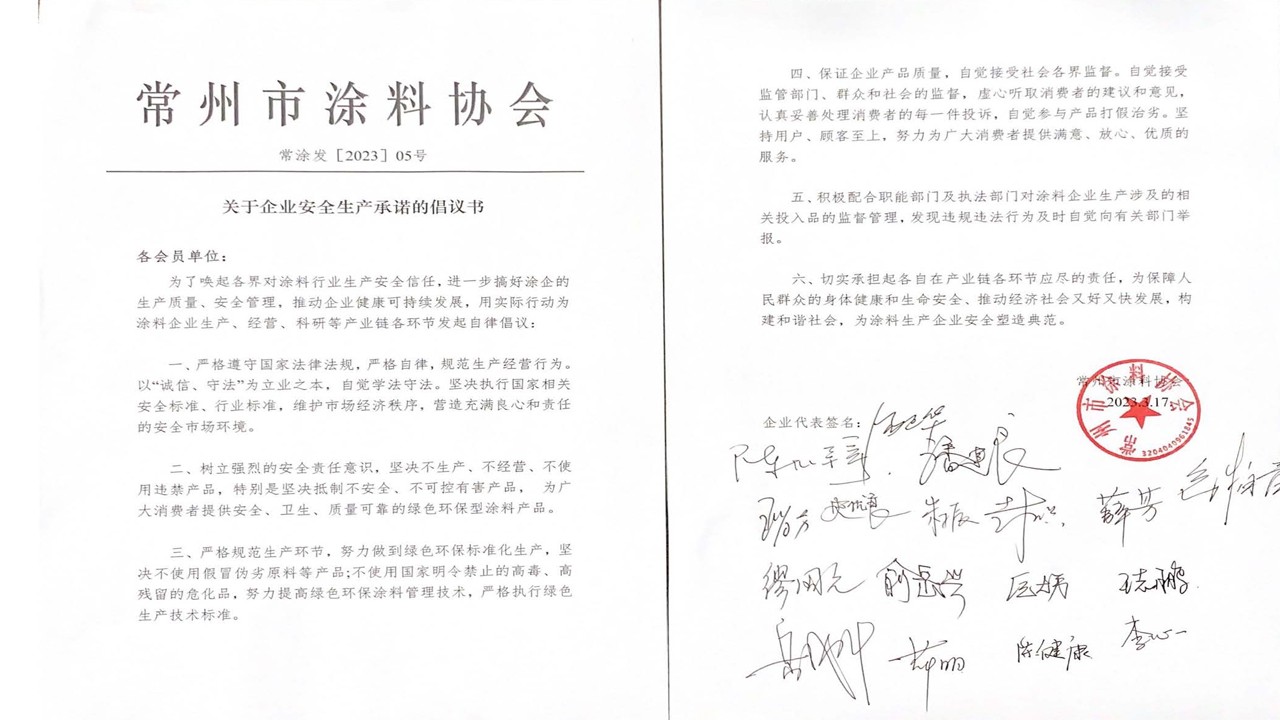 常州市涂料协会
常涂发［2023］05号
关于企业安全生产承诺的倡议书
各会员单位：
为了唤起各界对涂料行业生产安全信任，进一步搞好涂企的
生产质量、安全管理，推动企业健康可持续发展，用实际行动为
涂料企业生产、经营、科研等产业链各环节发起自律倡议：
一、严格遵守国家法律法规，严格自律，规范生产经营行为。
以“诚信、守法”为立业之本，自觉学法守法。坚决执行国家相关
安全标准、行业标准，维护市场经济秩序，营造充满良心和责任
的安全市场环境。
二、树立强烈的安全责任意识，坚决不生产、不经营、不使
用违禁产品，特别是坚决抵制不安全、不可控有害产品， 为广
大消费者提供安全、卫生、质量可靠的绿色环保型涂料产品。
三、严格规范生产环节，努力做到绿色环保标准化生产，坚
决不使用假冒伪劣原料等产品;不使用国家明令禁止的高毒、高
残留的危化品，努力提高绿色环保涂料管理技术，严格执行绿色
生产技术标准。
四、保证企业产品质量，自觉接受社会各界监督。自觉接受
监管部门、群众和社会的监督，虚心听取消费者的建议和意见，
认真妥善处理消费者的每一件投诉，自觉参与产品打假治劣。坚
持用户、顾客至上，努力为广大消费者提供满意、放心、优质的
服务。
五、积极配合职能部门及执法部门对涂料企业生产涉及的相
关投入品的监督管理，发现违规违法行为及时自觉向有关部门举
报。
六、切实承担起各自在产业链各环节应尽的责任，为保障人
民群众的身体健康和生命安全、推动经济社会又好又快发展，构
建和谐社会，为涂料生产企业安全塑造典范。
常州市涂料协会
2023.3.17
常州市涂料协会
3204040961845
企业代表签名：
薛芳
陈健康
李心一